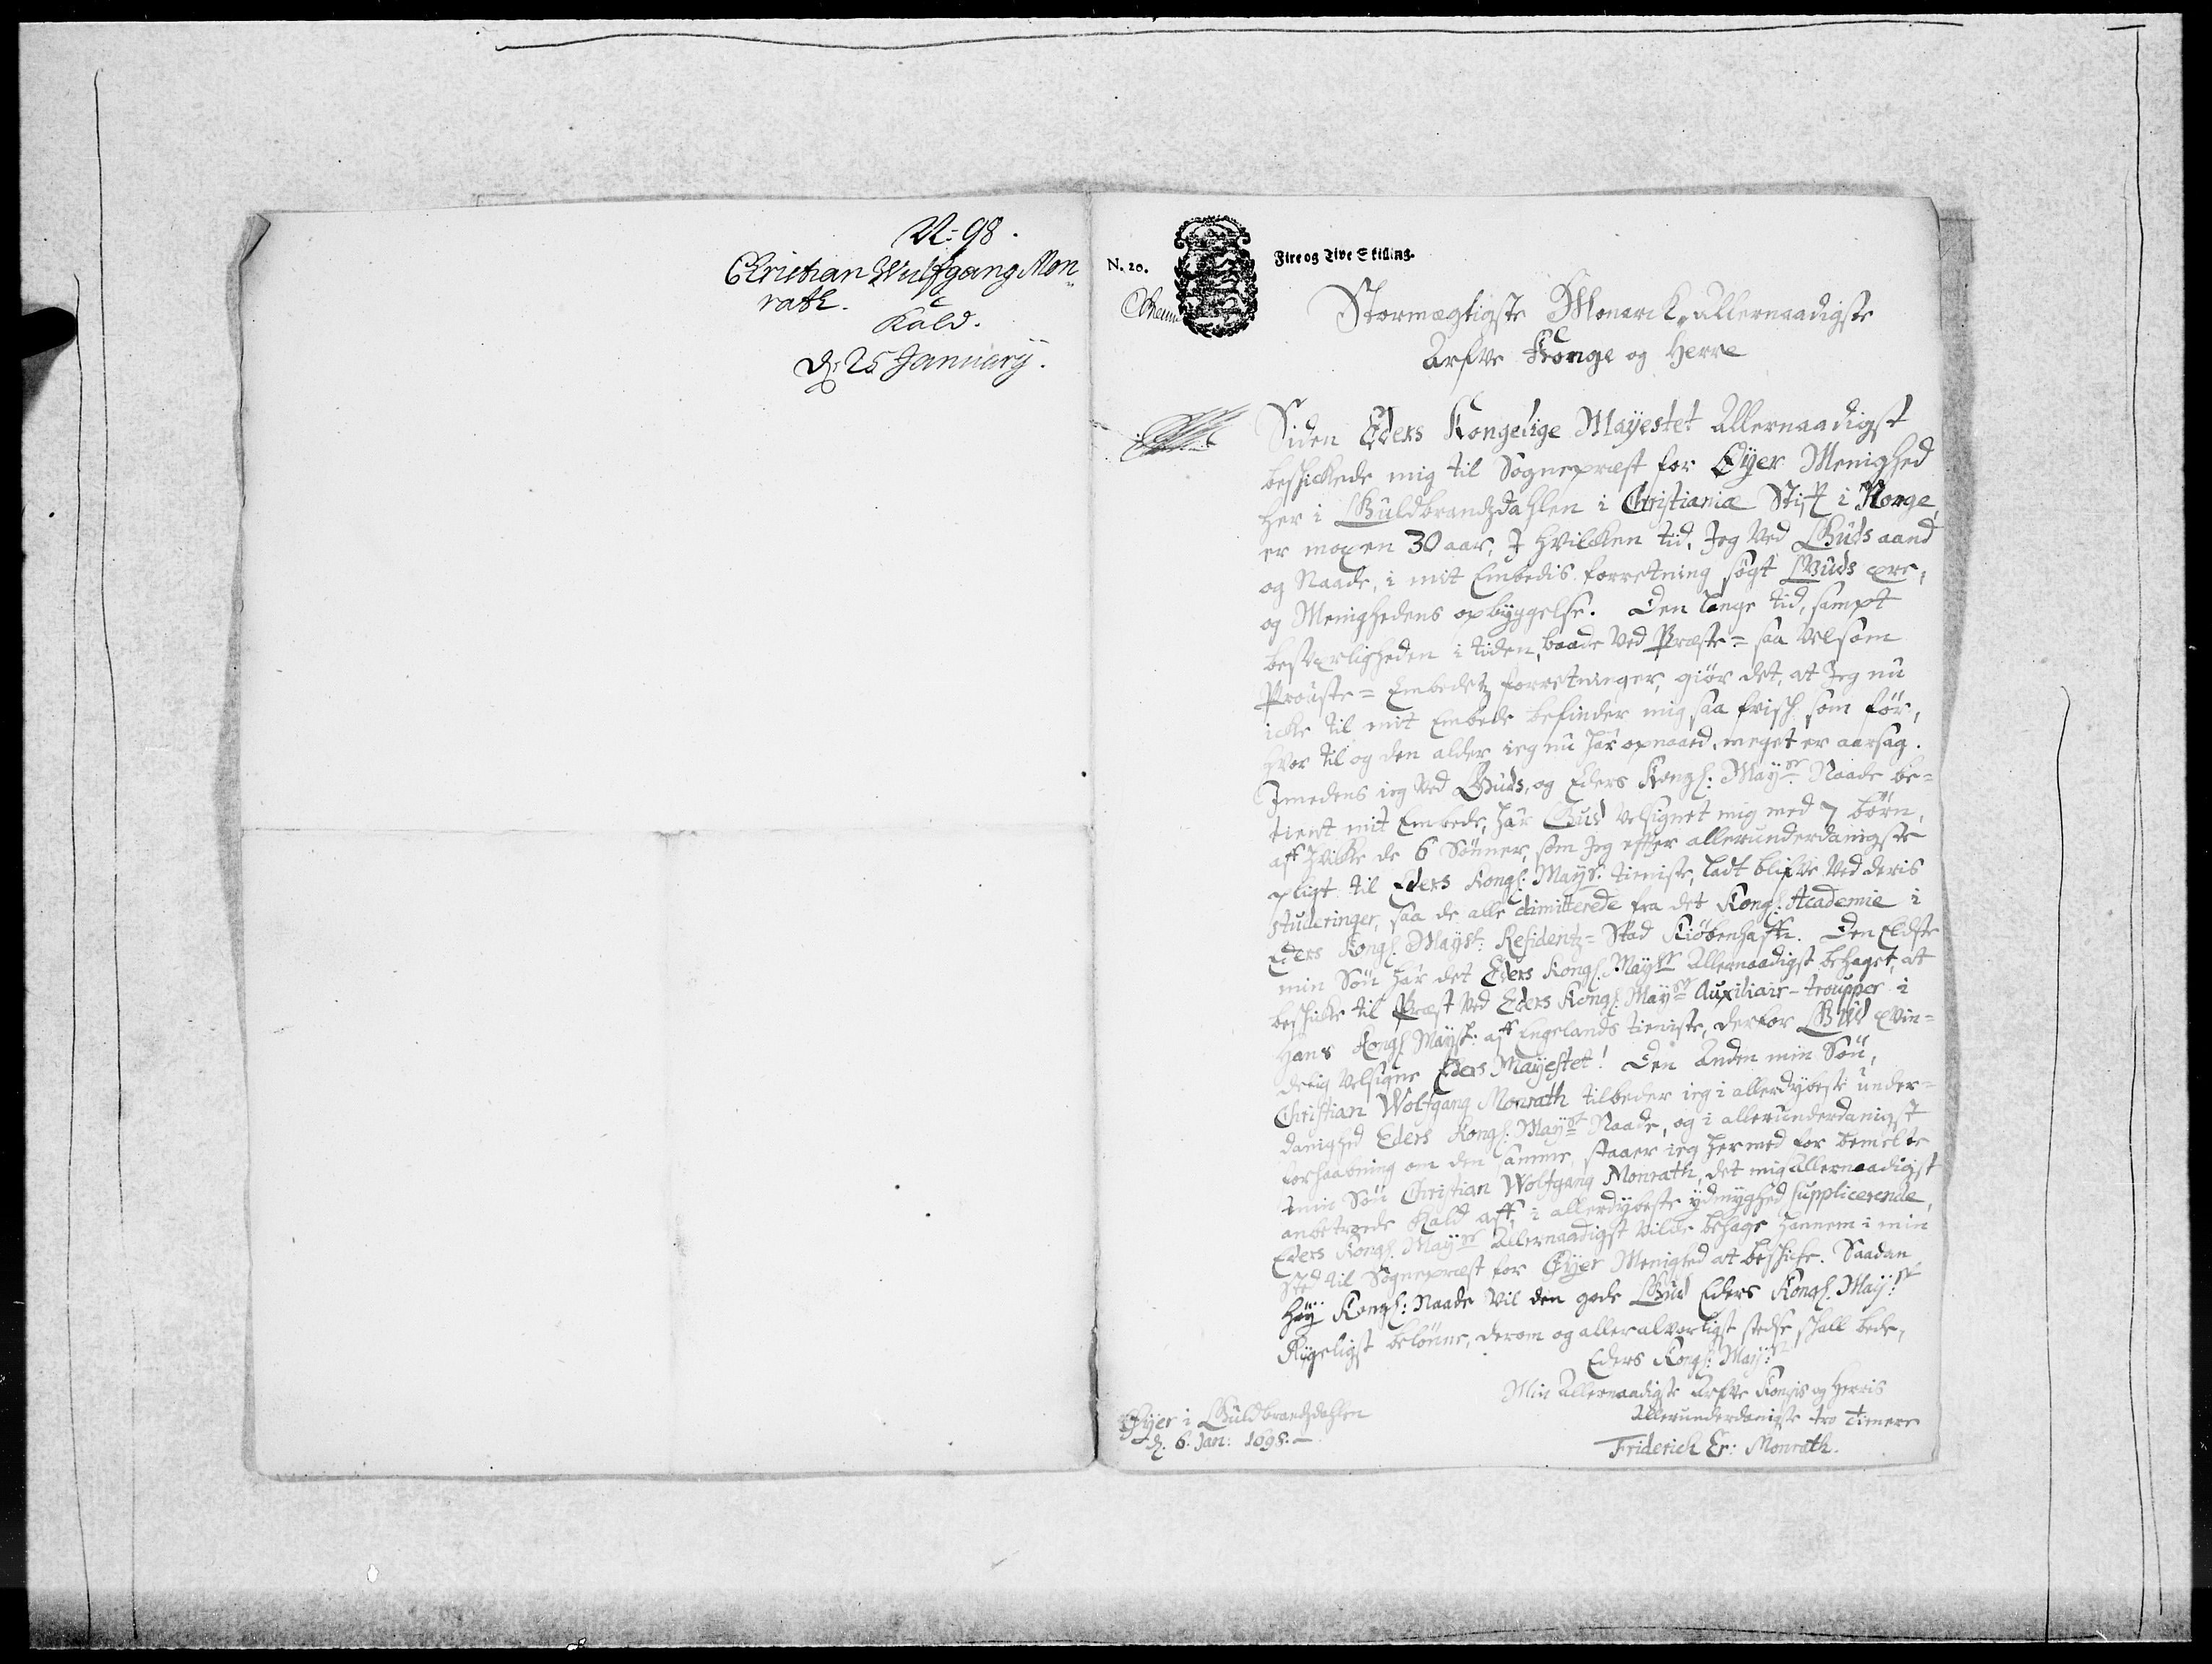 N: 98.
Christian Wulfgang Mon„
rath.
Kald.
d: 25 January.
N. 20.
Fire og Tive Skilling.
Stormægtigste Monarck, Allernaadigste
Arfve Konge og Herre
Siden Eders Kongelige Mayestet Allernaadigst
beskickede mig til Sognepræst for Øyer Menighed
her i Guldbrandzdahlen i Christianiæ Stift i Norge,
er moxen 30 aar, I hvilcken tid, Jeg ved Guds aand
og Naade, i mit Embedis forretning søgt Guds ære,
og Menighedens opbyggelse. Den lange tid, sampt
besværligheden i tiden, baade ved Præste= saa velsom
Prouste= Embedetz forretninger, giør det, at Jeg nu
icke til mit Embede befinder mig saa frisk som før,
hvor til og den alder ieg nu har opnaaed, meget er aarsag.
Imedens ieg ved Guds, og Eders Kongl: Mayst Naade be=
tient mit Embede, har Gud velsignet mig med 7 børn,
aff hvilcke de 6 Sønner, som Jeg efter allerunderdanigste
pligt til Eders Kongl. Mayst: tieniste, ladt blifve ved deris
studeringer, saa de alle dimitterede fra det Kongl. Academie i
Eders Kongl. Mayst: Residentz= Stad Kiøbenhaffn. Den Eldste
min Søn har det Eders Kongl. Mayst Allernaadigst behaget, at
beskicke til Præst ved Eders Kongl. Mayst Auxiliair-troupper i
Hans Kongl. Mayst: aff Engelands tieniste, derfor Gud ævin=
delig velsigne Eders Mayestet! Den Anden min Søn,
Christian Wolfgang Monrath tilbeder ieg i allerdybeste under=
danighed Eders Kongl: Mayst Naade, og i allerunderdanigst
forhaabning om den samme, staaer ieg hermed for bemelte
min Søn Christian Wolfgang Monrath, det mig Allernaadigst
anbetroede Kald aff, i allerdybeste ydmyghed supplicerende,
Eders Kongl. Mayst Allernaadigst vilde behage hannem i min
sted til Sognepræst for Øyer Menighed at beskicke. Saadan
Høy Kongl: Naade vil den gode Gud Eders Kongl. May:st
Rigeligst belønne, derom og alleralvorligst stedse skall bede,
Eders Kongl: May:st
Min Allernaadigste Arfve Kongis og Herris
Allerunderdanigste tro Tienere
Friderich Er: Monrath.
Øyer i Guldbrandzdahlen
d. 6. Jan: 1698.